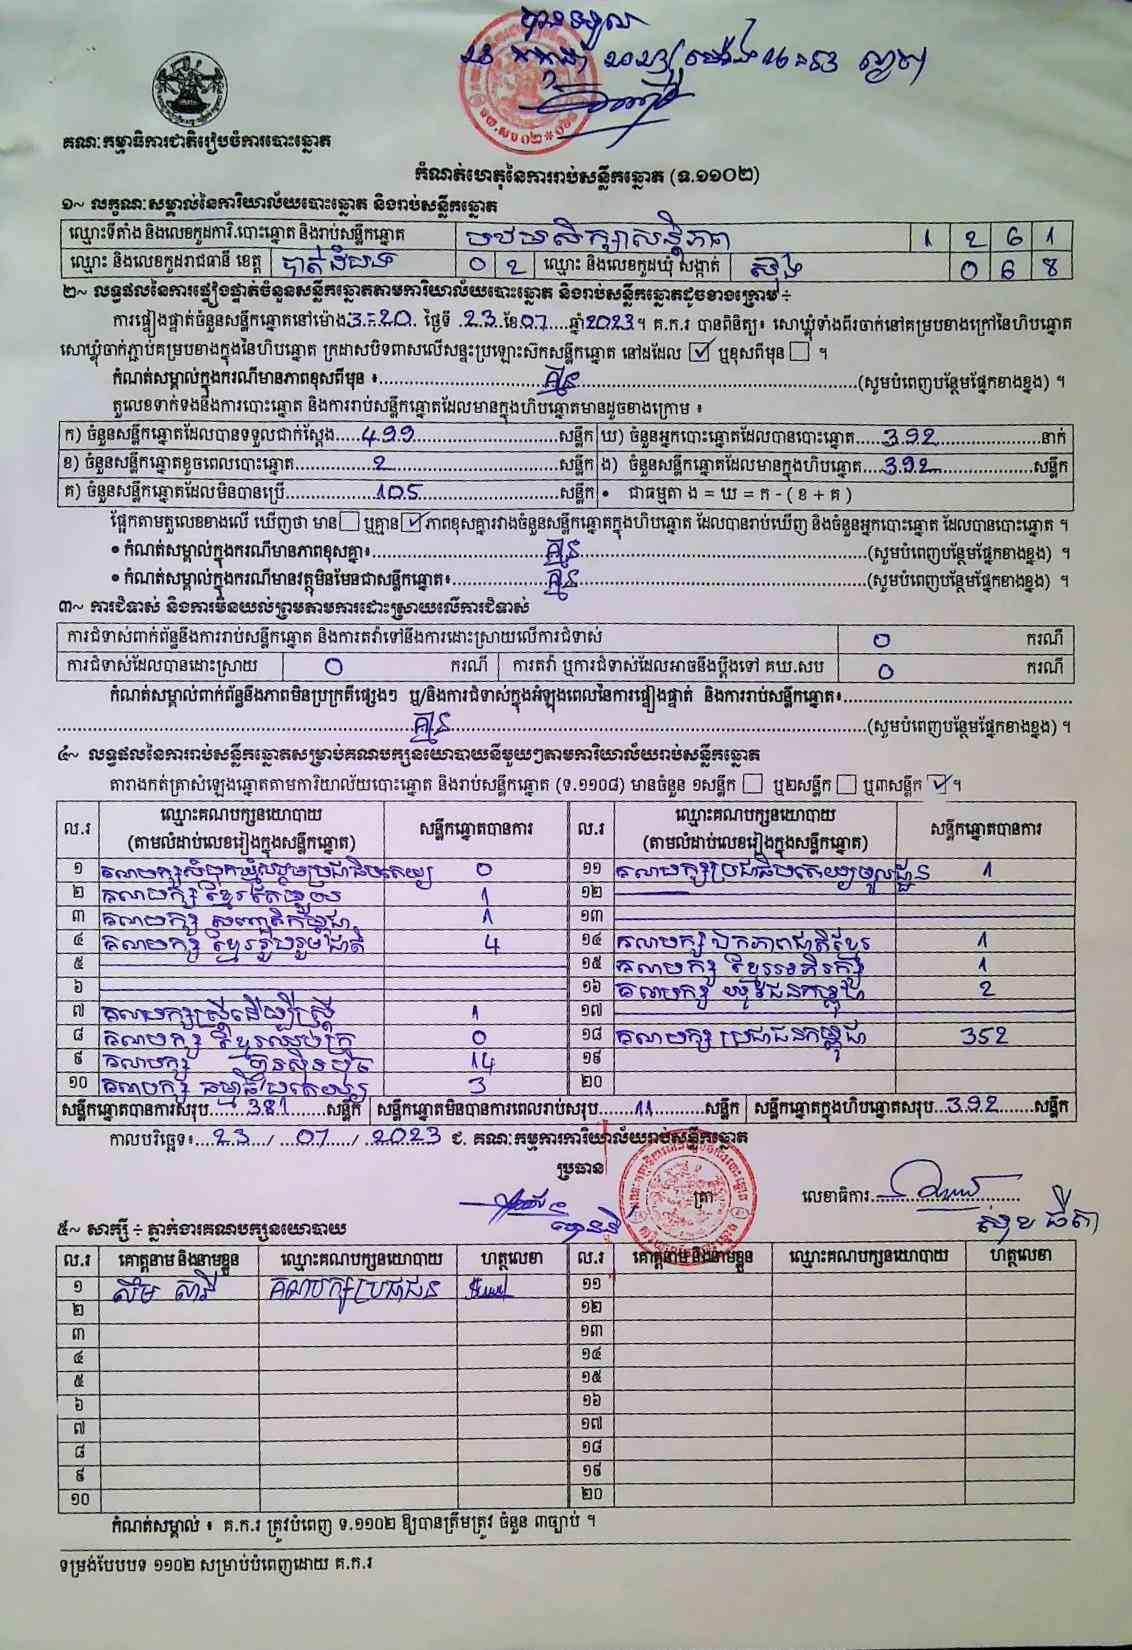 បានទទួល
គណៈកម្មាធិការជាតិរៀបចំការបោះឆ្នោត
កំណត់ហេតុនៃការរាប់សន្លឹកឆ្នោត (ទ.១១០២)
១~ លក្ខណៈសម្គាល់នៃការិយាល័យបោះឆ្នោត និងរាប់សន្លឹកឆ្នោត
ឈ្មោះទីតាំង និងលេខកូដការិ.បោះឆ្នោត និងរាប់សន្លឹកឆ្នោត បឋមសិក្សាសន្តិភាព 1 2 6 1
ឈ្មោះ និងលេខកូដរាជធានី ខេត្ត បាត់ដំបង 0 2 ឈ្មោះ និងលេខកូដឃុំ សង្កាត់ ស្នឹង 0 6 8
២~ លទ្ធផលនៃការផ្ទៀងផ្ទាត់ចំនួនសន្លឹកឆ្នោតតាមការិយាល័យបោះឆ្នោត និងរាប់សន្លឹកឆ្នោតដូចខាងក្រោម ÷
ការផ្ទៀងផ្ទាត់ចំនួនសន្លឹកឆ្នោតនៅម៉ោង 3:20 ថ្ងៃទី 23 ខែ 07 ឆ្នាំ 2023។ គ.ក.រ បានពិនិត្យ៖ សោឃ្លុំទាំងពីរចាក់នៅគម្របខាងក្រៅនៃហិបឆ្នោត
សោឃ្លុំចាក់ភ្ជាប់គម្របខាងក្នុងនៃហិបឆ្នោត ក្រដាសបិទពាសលើសន្ទះប្រឡោះស៊កសន្លឹកឆ្នោត នៅដដែល ☑ ឬខុសពីមុន ☐ ។
កំណត់សម្គាល់ក្នុងករណីមានភាពខុសពីមុន ៖ គ្មាន (សូមបំពេញបន្ថែមផ្នែកខាងខ្នង) ។
តួលេខទាក់ទងនឹងការបោះឆ្នោត និងការរាប់សន្លឹកឆ្នោតដែលមានក្នុងហិបឆ្នោតមានដូចខាងក្រោម ៖
ក) ចំនួនសន្លឹកឆ្នោតដែលបានទទួលជាក់ស្តែង 499 សន្លឹក ឃ) ចំនួនអ្នកបោះឆ្នោតដែលបានបោះឆ្នោត 392 នាក់
ខ) ចំនួនសន្លឹកឆ្នោតខូចពេលបោះឆ្នោត 2 សន្លឹក ង) ចំនួនសន្លឹកឆ្នោតដែលមានក្នុងហិបឆ្នោត 392 សន្លឹក
គ) ចំនួនសន្លឹកឆ្នោតដែលមិនបានប្រើ 105 សន្លឹក • ជាធម្មតា ង = ឃ = ក - ( ខ + គ )
ផ្អែកតាមតួលេខខាងលើ ឃើញថា មាន ☐ ឬគ្មាន ☑ ភាពខុសគ្នារវាងចំនួនសន្លឹកឆ្នោតក្នុងហិបឆ្នោត ដែលបានរាប់ឃើញ និងចំនួនអ្នកបោះឆ្នោត ដែលបានបោះឆ្នោត ។
• កំណត់សម្គាល់ក្នុងករណីមានភាពខុសគ្នា៖ គ្មាន (សូមបំពេញបន្ថែមផ្នែកខាងខ្នង) ។
• កំណត់សម្គាល់ក្នុងករណីមានវត្ថុមិនមែនជាសន្លឹកឆ្នោត៖ គ្មាន (សូមបំពេញបន្ថែមផ្នែកខាងខ្នង) ។
៣~ ការជំទាស់ និងការមិនយល់ព្រមតាមការដោះស្រាយលើការជំទាស់
ការជំទាស់ពាក់ព័ន្ធនឹងការរាប់សន្លឹកឆ្នោត និងការតវ៉ាទៅនឹងការដោះស្រាយលើការជំទាស់ 0 ករណី
ការជំទាស់ដែលបានដោះស្រាយ 0 ករណី ការតវ៉ា ឬការជំទាស់ដែលអាចនឹងប្តឹងទៅ គឃ.សប 0 ករណី
កំណត់សម្គាល់ពាក់ព័ន្ធនឹងភាពមិនប្រក្រតីផ្សេងៗ ឬ/និងការជំទាស់ក្នុងអំឡុងពេលនៃការផ្ទៀងផ្ទាត់ និងការរាប់សន្លឹកឆ្នោត៖
គ្មាន (សូមបំពេញបន្ថែមផ្នែកខាងខ្នង) ។
៤~ លទ្ធផលនៃការរាប់សន្លឹកឆ្នោតសម្រាប់គណបក្សនយោបាយនីមួយៗតាមការិយាល័យរាប់សន្លឹកឆ្នោត
តារាងកត់ត្រាសំឡេងឆ្នោតតាមការិយាល័យបោះឆ្នោត និងរាប់សន្លឹកឆ្នោត (ទ.១១០៨) មានចំនួន ១សន្លឹក ☐ ឬ២សន្លឹក ☐ ឬ៣សន្លឹក ☑ ។
ល.រ ឈ្មោះគណបក្សនយោបាយ (តាមលំដាប់លេខរៀងក្នុងសន្លឹកឆ្នោត) សន្លឹកឆ្នោតបានការ ល.រ ឈ្មោះគណបក្សនយោបាយ (តាមលំដាប់លេខរៀងក្នុងសន្លឹកឆ្នោត) សន្លឹកឆ្នោតបានការ
១ គណបក្សសំបុកឃ្មុំសង្គមប្រជាធិបតេយ្យ 0 ១១ គណបក្សប្រជាធិបតេយ្យមូលដ្ឋាន 1
២ គណបក្ស ខ្មែរតែមួយ 1 ១២
៣ គណបក្ស សញ្ជាតិកម្ពុជា 1 ១៣
៤ គណបក្ស ខ្មែររួបរួមជាតិ 4 ១៤ គណបក្ស ឯកភាពជាតិខ្មែរ 1
៥ ១៥ គណបក្ស ខ្មែរអភិរក្ស 1
៦ ១៦ គណបក្ស យុវជនកម្ពុជា 2
៧ គណបក្សស្ត្រីដើម្បីស្ត្រី 1 ១៧
៨ គណបក្ស ខ្មែរឈប់ក្រ 0 ១៨ គណបក្ស ប្រជាជនកម្ពុជា 352
៩ គណបក្ស ហ៊្វុនស៊ិនប៉ិច 14 ១៩
១០ គណបក្ស ធម្មាធិបតេយ្យ 3 ២០
សន្លឹកឆ្នោតបានការសរុប 381 សន្លឹក សន្លឹកឆ្នោតមិនបានការពេលរាប់សរុប 11 សន្លឹក សន្លឹកឆ្នោតក្នុងហិបឆ្នោតសរុប 392 សន្លឹក
កាលបរិច្ឆេទ៖ 23 / 07 / 2023 ជ. គណៈកម្មការការិយាល័យរាប់សន្លឹកឆ្នោត
ប្រធាន ត្រា លេខាធិការ
៥~ សាក្សី ÷ ភ្នាក់ងារគណបក្សនយោបាយ
ល.រ គោត្តនាម និងនាមខ្លួន ឈ្មោះគណបក្សនយោបាយ ហត្ថលេខា ល.រ គោត្តនាម និងនាមខ្លួន ឈ្មោះគណបក្សនយោបាយ ហត្ថលេខា
១ គណបក្សប្រជាជន ១១
២ ១២
៣ ១៣
៤ ១៤
៥ ១៥
៦ ១៦
៧ ១៧
៨ ១៨
៩ ១៩
១០ ២០
កំណត់សម្គាល់ ៖ គ.ក.រ ត្រូវបំពេញ ទ.១១០២ ឱ្យបានត្រឹមត្រូវ ចំនួន ៣ច្បាប់ ។
ទម្រង់បែបបទ ១១០២ សម្រាប់បំពេញដោយ គ.ក.រ